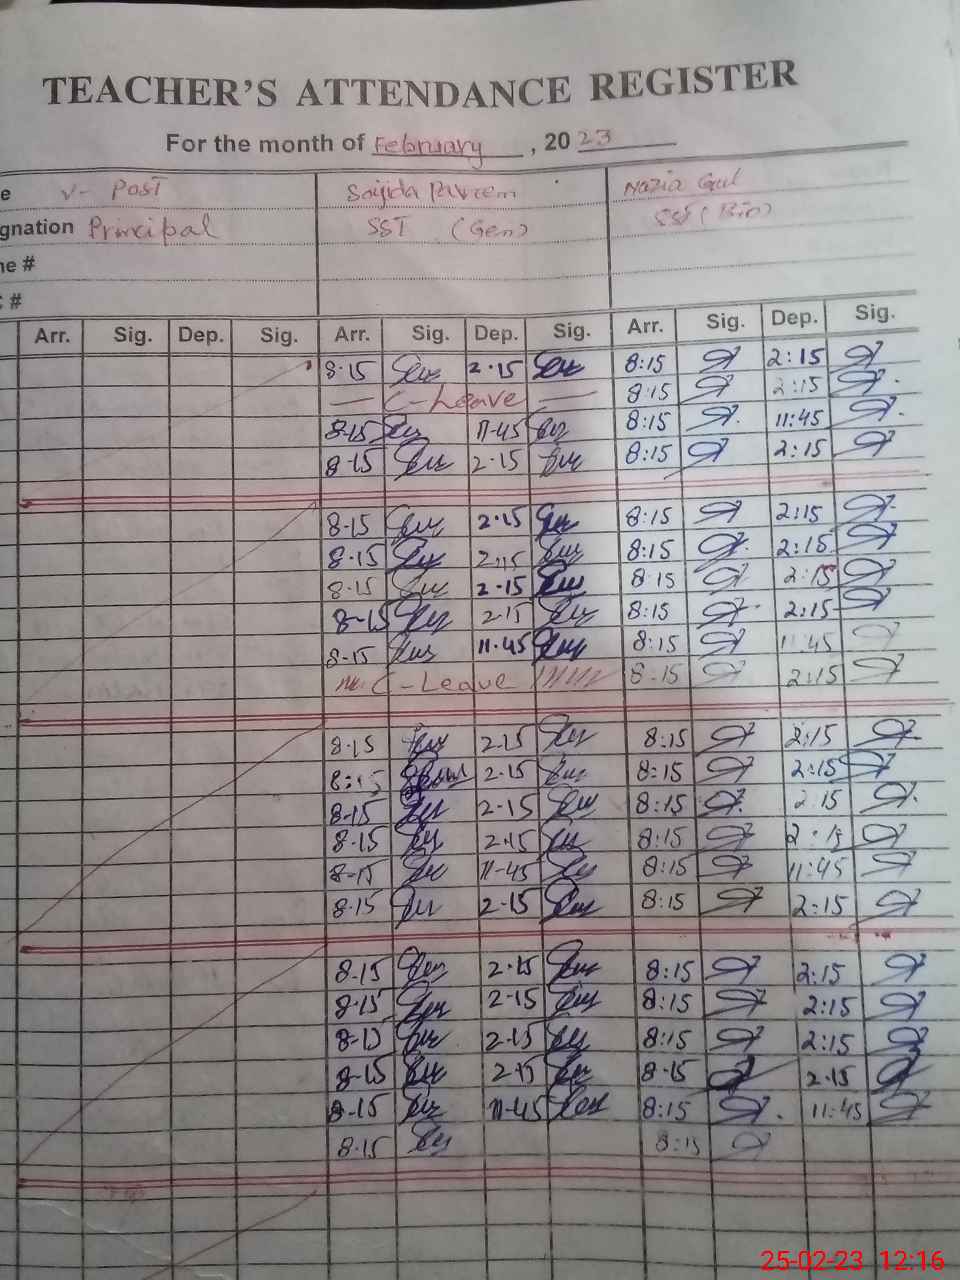 TEACHER'S ATTENDANCE REGISTER
For the month of February, 2023
e V- Post Sajida Parveen Nazia Gul
gnation Principal SST (Gen) SST (Bio)
ne #
#
Arr. Sig. Dep. Sig. Arr. Sig. Dep. Sig. Arr. Sig. Dep. Sig.
8-15 2-15 8:15 2:15
C-Leave 8:15 2:15
8-15 11-45 8:15 11:45
8-15 2-15 8:15 2:15
8-15 2-15 8:15 2:15
8-15 2-15 8:15 2:15
8-15 2-15 8:15 2:15
8-15 2-15 8:15 2:15
8-15 11-45 8:15 11:45
C-Leave 8:15 2:15
8-15 2-15 8:15 2:15
8:15 2-15 8:15 2:15
8-15 2-15 8:15 2:15
8-15 2-15 8:15 2:15
8-15 11-45 8:15 11:45
8-15 2-15 8:15 2:15
8-15 2-15 8:15 2:15
8-15 2-15 8:15 2:15
8-15 2-15 8:15 2:15
8-15 2-15 8-15 2-15
8-15 11-45 8:15 11:45
8-15 8:15
25-02-23 12:16